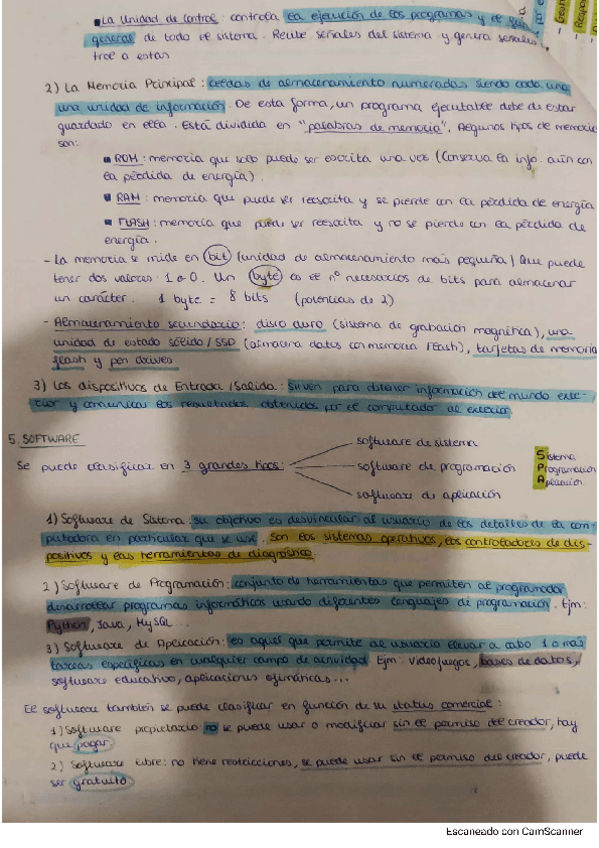 ▪ La Unidad de Control: controla la ejecución de los programas y el
general de todo el sistema. Recibe señales del sistema y genera señales
trol a estas
2) La Memoria Principal: celdas de almacenamiento numeradas siendo cada una
una unidad de información. De esta forma, un programa ejecutable debe de estar
guardado en ella. Está dividida en "palabras de memoria". Algunos tipos de memoria
son:
▪ ROM: memoria que solo puede ser escrita una vez (conserva la info. aún con
la pérdida de energía).
▪ RAM: memoria que puede ser reescrita y se pierde con la pérdida de energía
▪ FLASH: memoria que puede ser reescrita y no se pierde con la pérdida de
energía.
- La memoria se mide en bit (unidad de almacenamiento más pequeña) que puede
tener dos valores: 1 o 0. Un byte es el nº necesarios de bits para almacenar
un carácter. 1 byte = 8 bits (potencias de 2)
- Almacenamiento secundario: disco duro (sistema de grabación magnética), una
unidad de estado sólido/SSD (almacena datos con memoria flash), tarjetas de memoria
flash y pen drives
3) Los dispositivos de Entrada/Salida: sirven para obtener información del mundo exte-
rior y comunicar los resultados obtenidos por el computador al exterior.
5. SOFTWARE
software de sistema
Se puede clasificar en 3 grandes tipos: software de programación
software de aplicación
Sistema
Programación
Aplicación
1) Software de Sistema: su objetivo es desvincular al usuario de los detalles de la com-
putadora en particular que se use. Son los sistemas operativos, los controladores de dis-
positivos y las herramientas de diagnóstico.
2) Software de Programación: conjunto de herramientas que permiten al programador
desarrollar programas informáticos usando diferentes lenguajes de programación. Ejm:
Python, Java, MySQL...
3) Software de Aplicación: es aquel que permite al usuario llevar a cabo 1 o más
tareas específicas en cualquier campo de actividad. Ejm: videojuegos, bases de datos,
software educativo, aplicaciones ofimáticas...
El software también se puede clasificar en función de su status comercial:
1) Software propietario: no se puede usar o modificar sin el permiso del creador, hay
que pagar.
2) Software libre: no tiene restricciones, se puede usar sin el permiso del creador, puede
ser gratuito
Escaneado con CamScanner